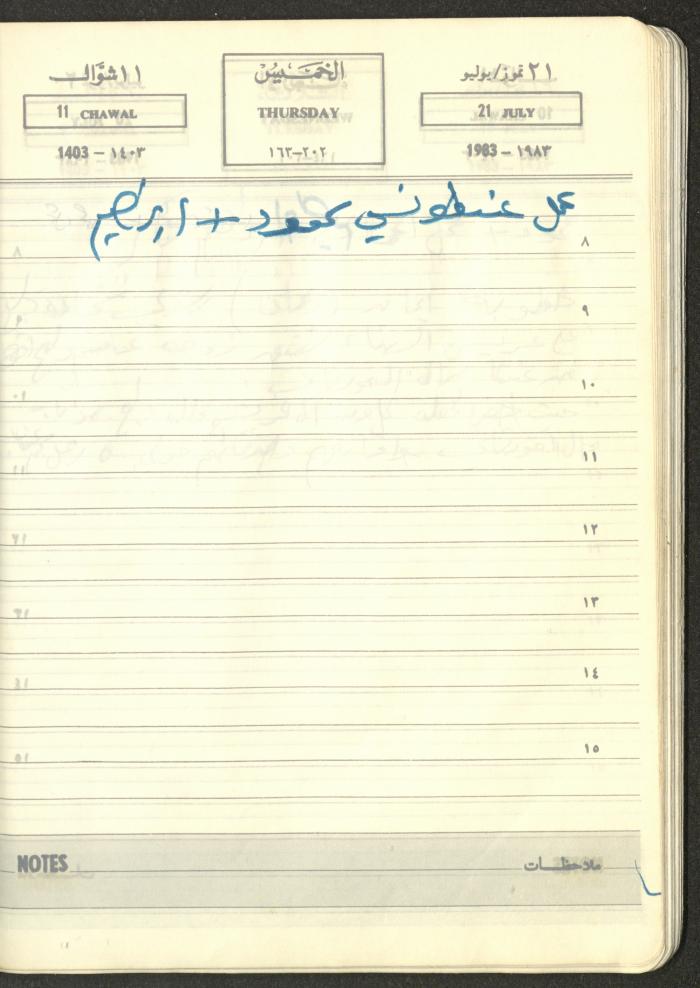 ٢١ تموز/يوليو الخميس ١١ شوّال
21 JULY THURSDAY 11 CHAWAL
1983 – ١٩٨٣ ١٦٣-٢٠٢ 1403 – ١٤٠٣
عمل عند طونسي محمود + ابراهيم
٨
٩
١٠
١١
١٢
١٣
١٤
١٥
NOTES ملاحظات